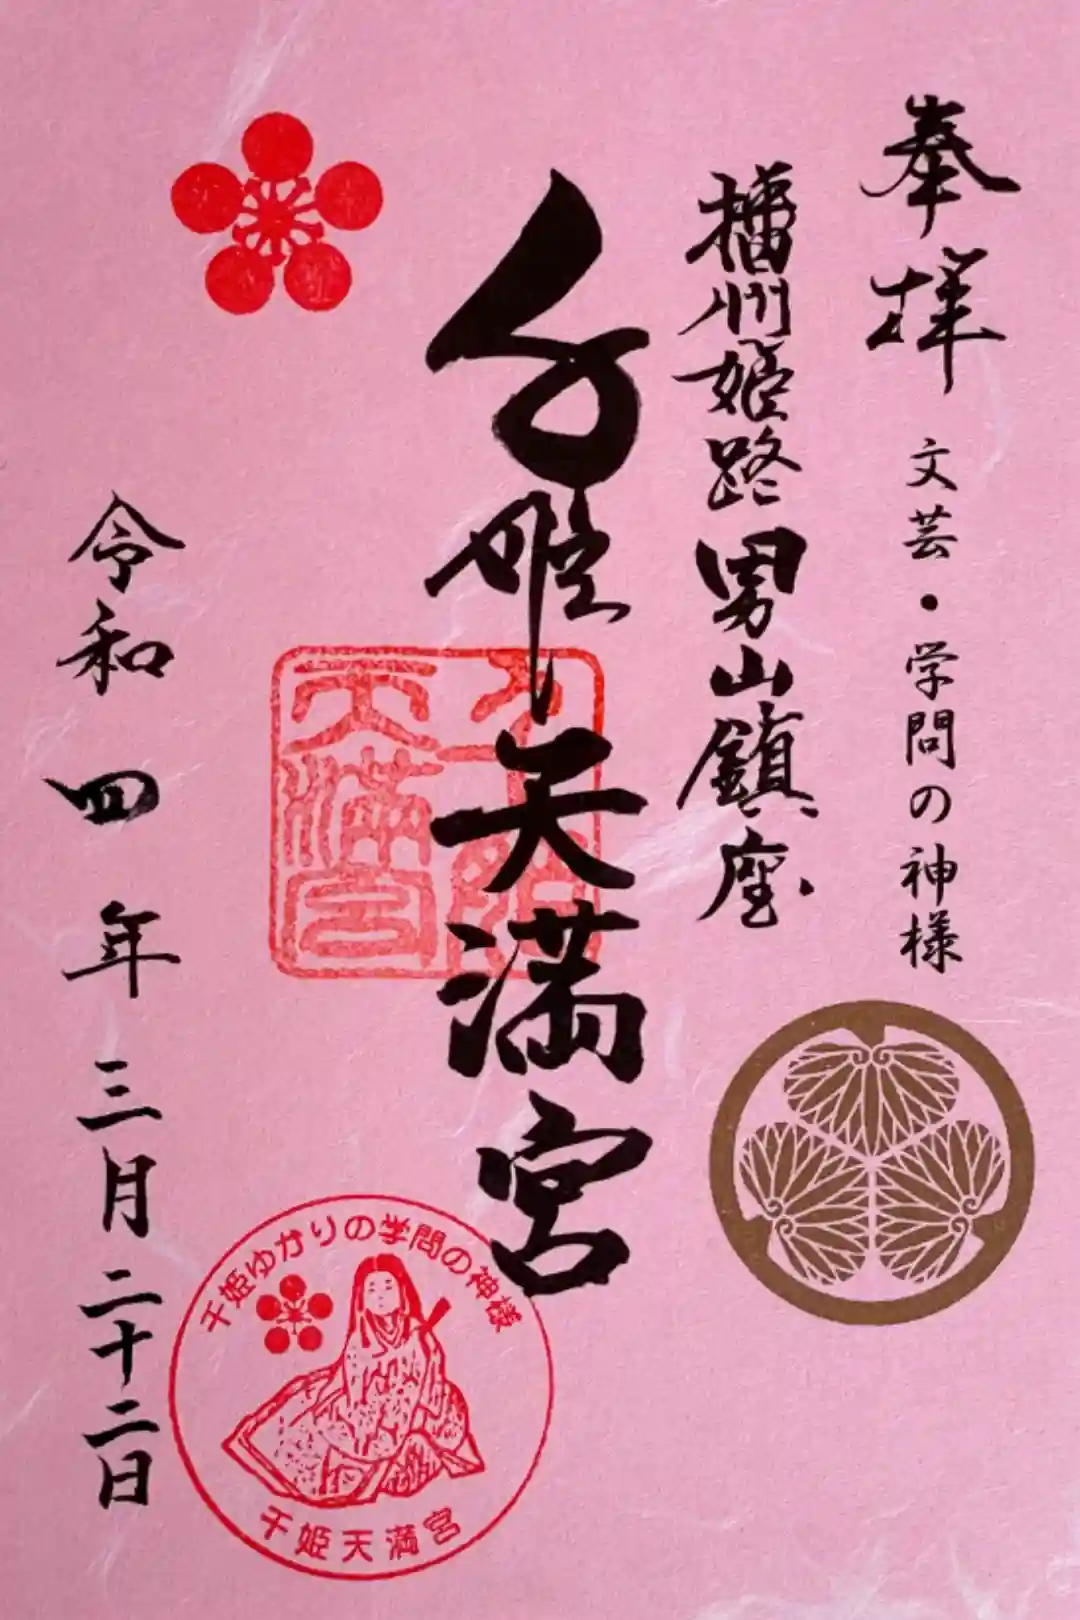 奉拝
文芸・学問の神様
播州姫路男山鎮座
千姫天満宮
千姫天満宮
令和四年三月二十二日
千姫ゆかりの学問の神様
千姫天満宮